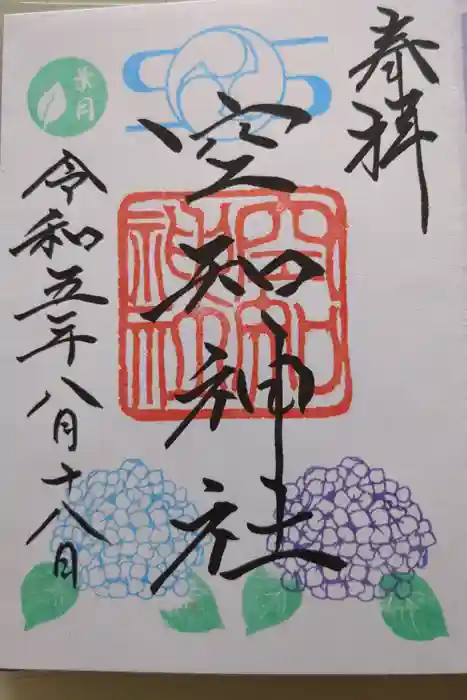 奉拝
空知神社
空知
神社
葉月
令和五年八月十八日